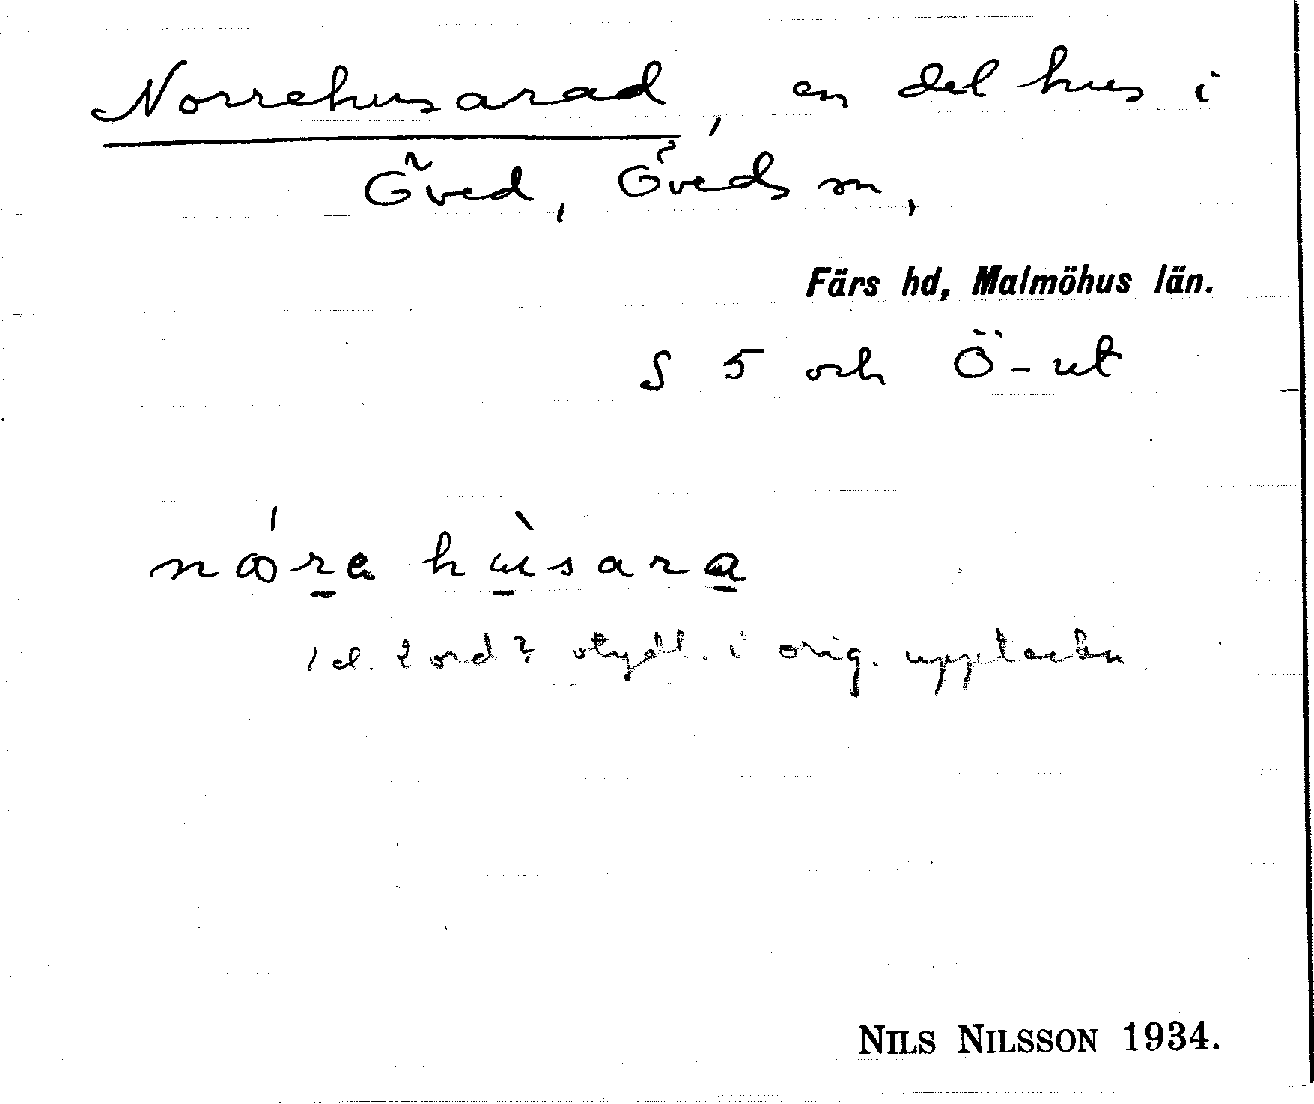 Norrehusarad, en del hus i
Öved, Öveds sn,
Färs hd, Malmöhus län.
S 5 och Ö-ut
nǿra hùsara
1 el. 2 ord? otydl. i orig. uppteckn.
NILS NILSSON 1934.